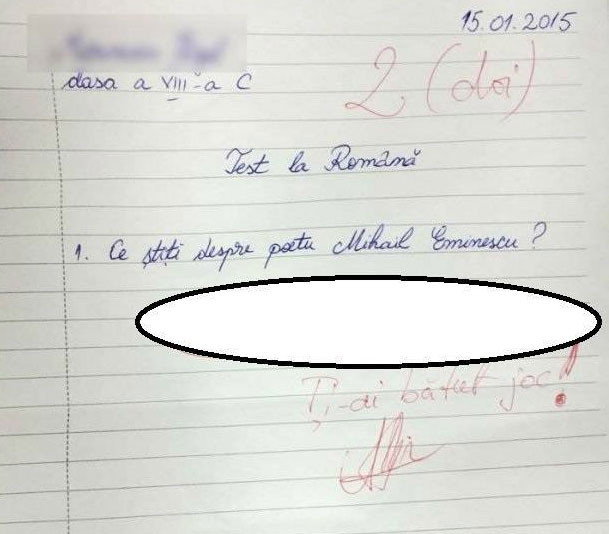 15.01.2015
clasa a VIII-a C
2 (doi)
Test la Română
1. Ce știți despre poetu Mihail Eminescu?
Ți-ai bătut joc!